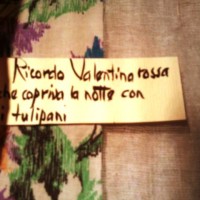 Ricordo Valentina rossa
che copriva la notte con
i tulipani